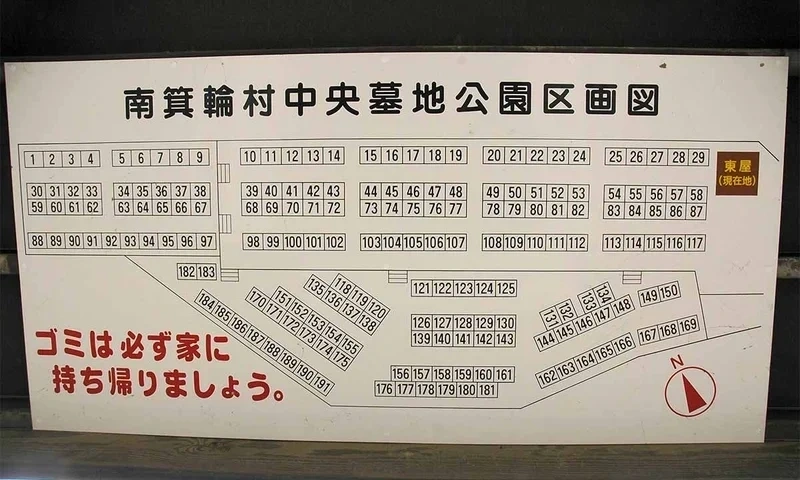 南箕輪村中央墓地公園区画図
1 2 3 4 5 6 7 8 9 10 11 12 13 14 15 16 17 18 19 20 21 22 23 24 25 26 27 28 29
東屋
(現在地)
30 31 32 33 34 35 36 37 38 39 40 41 42 43 44 45 46 47 48 49 50 51 52 53 54 55 56 57 58
59 60 61 62 63 64 65 66 67 68 69 70 71 72 73 74 75 76 77 78 79 80 81 82 83 84 85 86 87
88 89 90 91 92 93 94 95 96 97 98 99 100 101 102 103 104 105 106 107 108 109 110 111 112 113 114 115 116 117
182 183
118 119 120
121 122 123 124 125
131 132 133 134
149 150
135 136 137 138
151 152 153 154 155
126 127 128 129 130
144 145 146 147 148
170 171 172 173 174 175
139 140 141 142 143
167 168 169
184 185 186 187 188 189 190 191
156 157 158 159 160 161
162 163 164 165 166
176 177 178 179 180 181
ゴミは必ず家に
持ち帰りましょう。
N